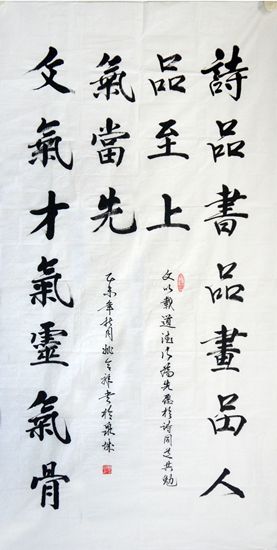 詩品書品畫品人
品至上
文氣才氣靈氣骨
氣當先
文以載道德為先同道共勉
乙未年秋月姚書於泉城